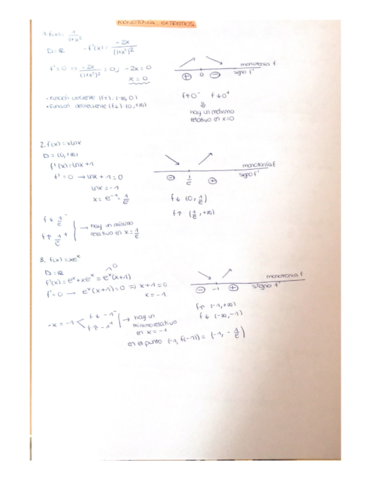 MONOTONÍA Y EXTREMOS
1. f(x) = 1/(1+x²)
D=ℝ · f'(x) = -2x/(1+x²)²
f'=0 ⇒ -2x/(1+x²)² = 0; -2x=0
x=0
monotonía f
⊕ 0 ⊖ signo f'
· función creciente (-∞, 0)
· función decreciente (0, +∞)
f↑0⁻ f↓0⁺
⇓
hay un máximo
relativo en x=0
2. f(x) = x lnx
D = (0, +∞)
f'(x) = lnx + 1
f'=0 → lnx + 1 = 0
lnx = -1
x = e⁻¹ = 1/e
monotonía f
⊖ 1/e ⊕ signo f'
f↓ (0, 1/e)
f↑ (1/e, +∞)
f↓ 1/e⁻
f↑ 1/e⁺
→ hay un mínimo
relativo en x = 1/e
3. f(x) = xeˣ
D=ℝ
f'(x) = eˣ + xeˣ = eˣ(x+1)
f'=0 → eˣ(x+1) = 0 ⇒ x+1=0
x=-1
monotonía f
⊖ -1 ⊕ signo f'
f↑ (-1, +∞)
f↓ (-∞, -1)
· x = -1 f↓ -1⁻
f↑ -1⁺
→ hay un
mínimo relativo
en x=-1
en el punto (-1, f(-1)) = (-1, -1/e)